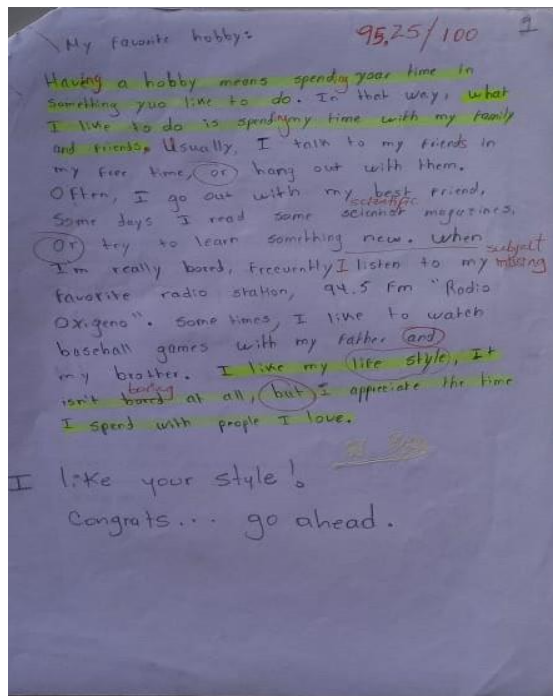 My favorite hobby:
95,25/100
1
Having a hobby means spending your time in
something yuo like to do. In that way, what
I like to do is spending my time with my family
and friends. Usually, I talk to my friends in
my free time, or hang out with them.
Often, I go out with my best friend.
scientific
Some days I read some megazines,
Or try to learn something new. when
subject
I'm really bored, frecuently I listen to my
missing
favorite radio station, 94.5 Fm "Radio
Oxigeno". Some times, I like to watch
baseball games with my father and
my brother. I like my life style, It
boring
isn't bored at all, but I appreciate the time
I spend with people I love.
I like your style!
Congrats... go ahead.